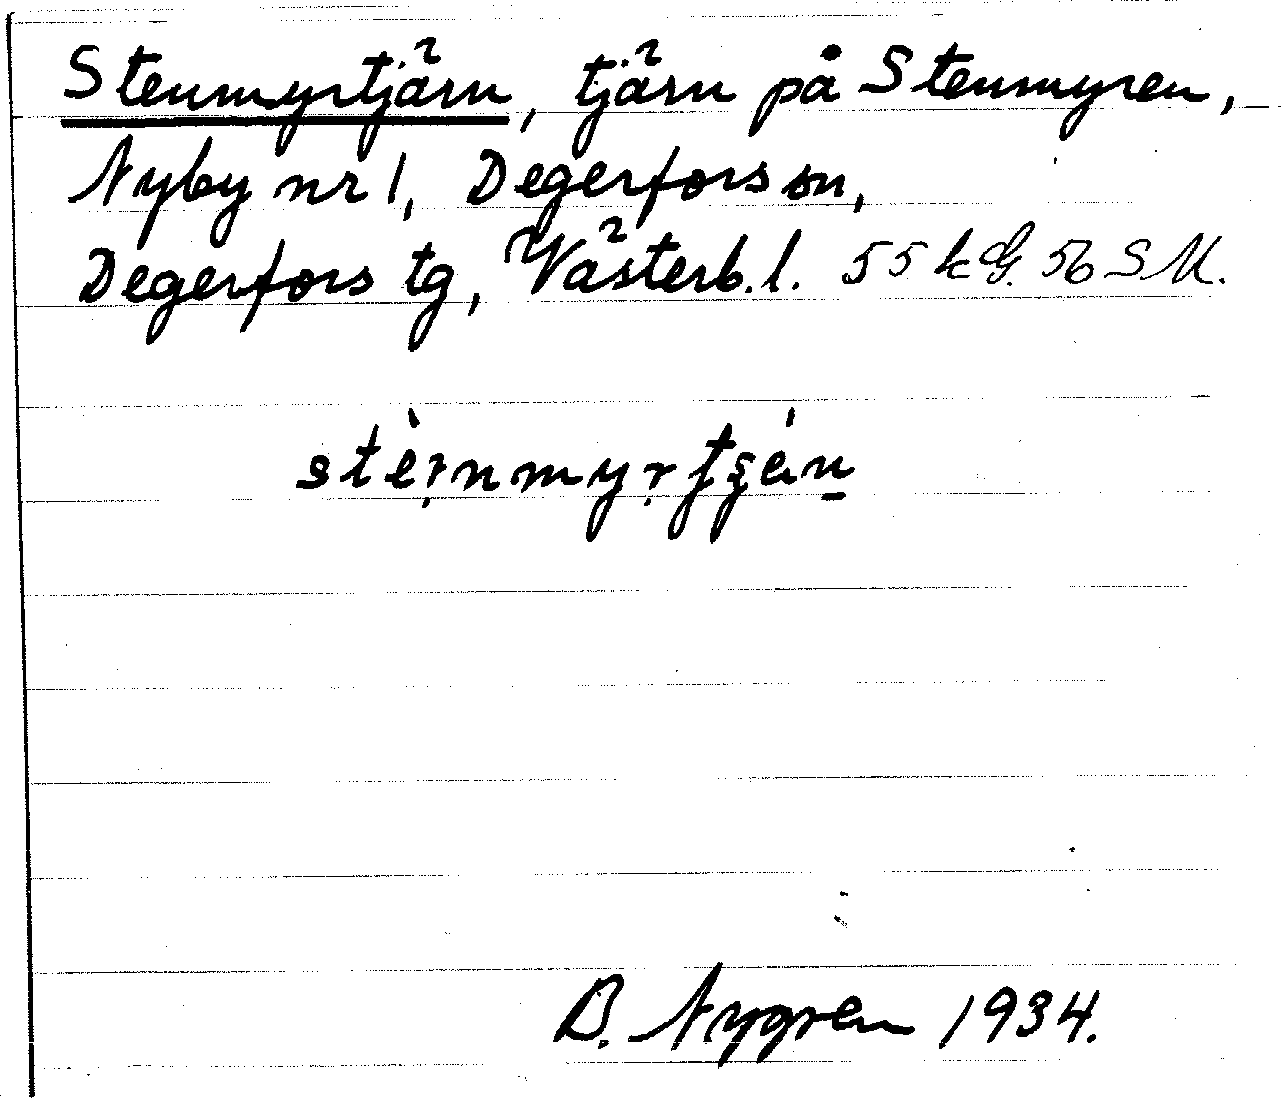 Stenmyrtjärn, tjärn på Stenmyren,
Nyby nr 1, Degerfors sn,
Degerfors tg, Västerb. l. 55 k G. 56 SM.
B. Nygren 1934.